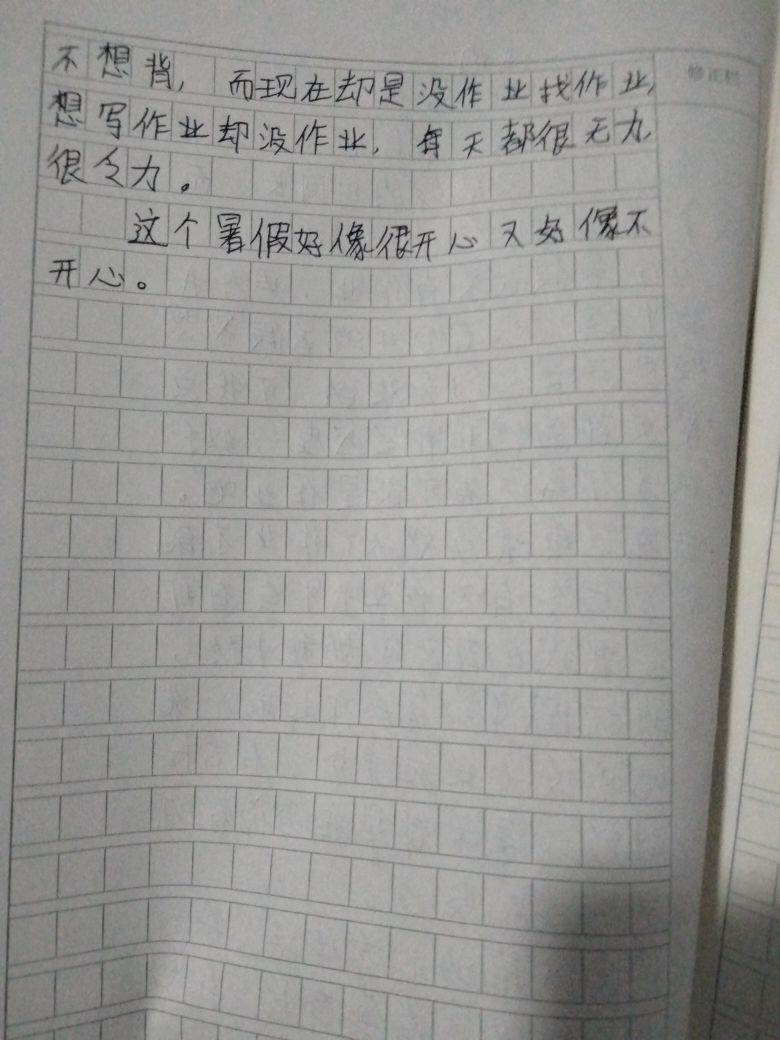 不想背，而现在却是没作业找作业，
想写作业却没作业，每天都很无力，
很乏力。
这个暑假好像很开心又好像不
开心。
修正栏